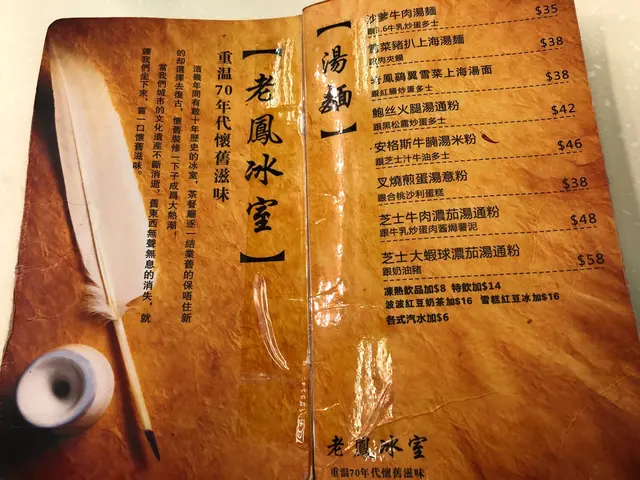 【老鳳冰室】
重温70年代懷舊滋味
這幾年間有數十年歷史的冰室，茶餐廳逐一結業舊的保唔住新
的却選擇去復古，懷舊裝修一下子成爲大熱潮！
當我們城市的文化遺產不斷消逝，舊東西無聲無息的消失，就
讓我們坐下來，嘗一口懷舊滋味。
【湯麵】
沙爹牛肉湯麵 $35
跟3.6牛乳炒蛋多士
雪菜豬扒上海湯麵 $38
肉夾饃
鳳鷄翼雪菜上海湯面 $38
跟紅腸炒蛋多士
鮑丝火腿湯通粉 $42
跟黑松露炒蛋多士
安格斯牛腩湯米粉 $46
跟芝士汁牛油多士
叉燒煎蛋湯意粉 $38
跟合桃沙利蛋糕
芝士牛肉濃茄湯通粉 $48
跟牛乳炒蛋肉醬焗薯泥
芝士大蝦球濃茄湯通粉 $58
跟奶油豬
凍熱飲品加$8 特飲加$14
波波紅豆奶茶加$16 雪糕紅豆冰加$16
各式汽水加$6
老鳳冰室
重温70年代懷舊滋味